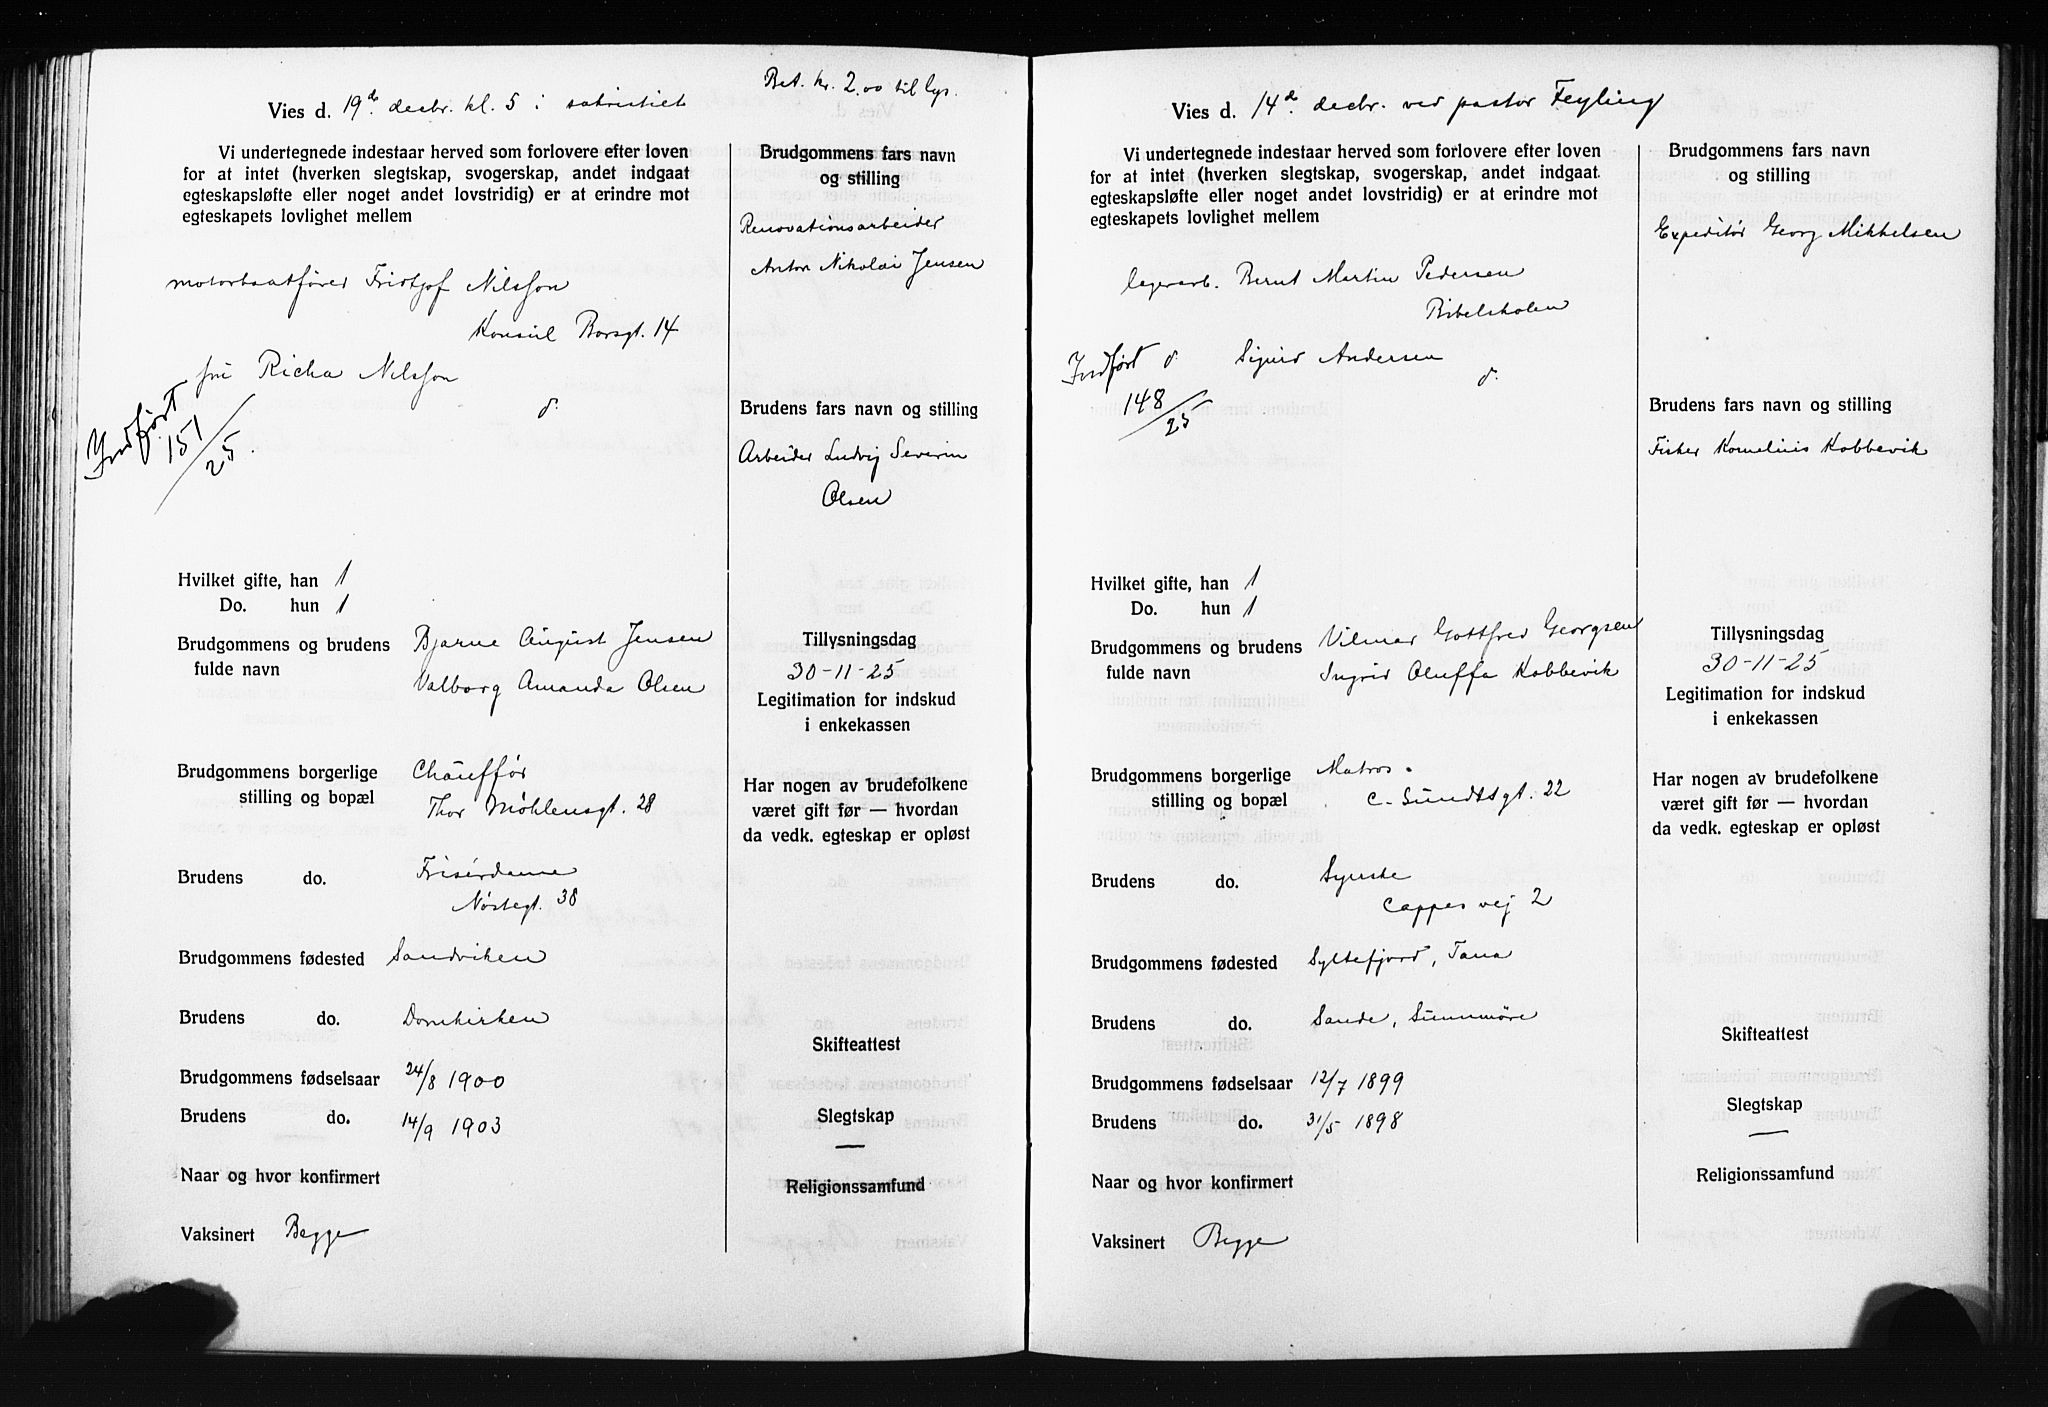 Bet. kr. 2.00 til lys.
Vies d. 19de decbr. kl. 5 i sakristiet
Vi undertegnede indestaar herved som forlovere efter loven
for at intet (hverken slegtskap, svogerskap, andet indgaat
egteskapsløfte eller noget andet lovstridig) er at erindre mot
egteskapets lovlighet mellem
motorbaatfører Fridtjof Nilsson
Konsul Børsgt. 14
fru Richa Nilsson
d.
Indført
151/25.
Brudgommens fars navn
og stilling
Renovationsarbeider
Anton Nikolai Jensen
Brudens fars navn og stilling
Arbeider Ludvig Severin
Olsen
Hvilket gifte, han 1
Do. hun 1
Brudgommens og brudens Bjarne August Jensen
fulde navn Valborg Amanda Olsen
Tillysningsdag
30-11-25
Legitimation for indskud
i enkekassen
Brudgommens borgerlige Chauffør
stilling og bopæl Thor Møhlensgt. 28
Har nogen av brudefolkene
været gift før — hvordan
da vedk. egteskap er opløst
Brudens do. Frisérdame
Nøstegt. 38
Brudgommens fødested Sandviken
Brudens do. Domkirken
Skifteattest
Brudgommens fødselsaar 24/8 1900
Brudens do. 14/9 1903
Slegtskap
—
Naar og hvor konfirmert
Religionssamfund
Vaksinert Begge
Vies d. 14de decbr. ved pastor Feyling
Vi undertegnede indestaar herved som forlovere efter loven
for at intet (hverken slegtskap, svogerskap, andet indgaat
egteskapsløfte eller noget andet lovstridig) er at erindre mot
egteskapets lovlighet mellem
lagerarb. Bernt Martin Pedersen
Bibelskolen
Indført d. Sigurd Andersen
d.
148/25
Brudgommens fars navn
og stilling
Expeditør Georg Mikkelsen
Brudens fars navn og stilling
Fisker Kornelius Kobbevik
Hvilket gifte, han 1
Do. hun 1
Brudgommens og brudens Vilmar Gottfred Georgsen
fulde navn Ingrid Oluffa Kobbevik
Tillysningsdag
30-11-25
Legitimation for indskud
i enkekassen
Brudgommens borgerlige Matros.
stilling og bopæl C. Sundtsgt. 22
Har nogen av brudefolkene
været gift før — hvordan
da vedk. egteskap er opløst
Brudens do. Syerske
Cappes vej 2
Brudgommens fødested Syltefjord, Tana
Brudens do. Sande, Sunnmøre
Skifteattest
Brudgommens fødselsaar 12/7 1899
Brudens do. 31/5 1898
Slegtskap
—
Naar og hvor konfirmert
Religionssamfund
Vaksinert Begge